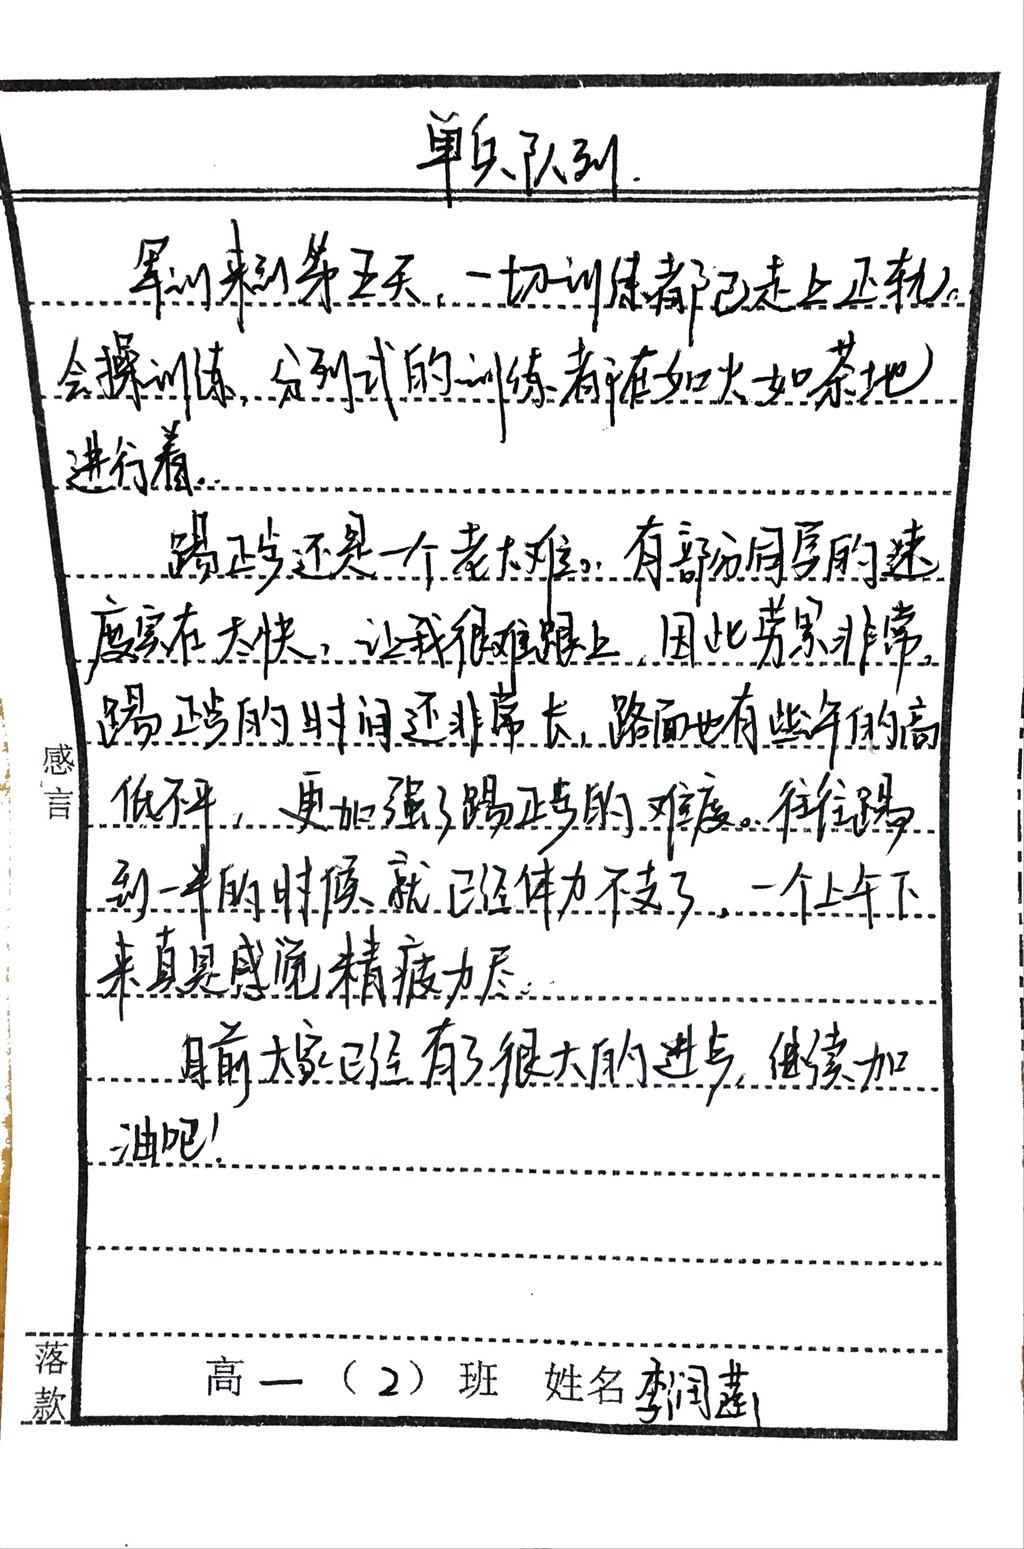 单兵队列.
军训来到第五天,一切训练都已走上正轨。
会操训练,分列式的训练都在如火如荼地
进行着。
踢正步还是一个老大难。有部分同学的速
度实在太快,让我很难跟上,因此劳累非常。
踢正步的时间还非常长,路面也有些许的高
低不平,更加强了踢正步的难度。往往踢
到一半的时候就已经体力不支了,一个上午下
来真是感觉精疲力尽。
目前大家已经有了很大的进步,继续加
油吧!
感言
落款
高一(2)班 姓名李润